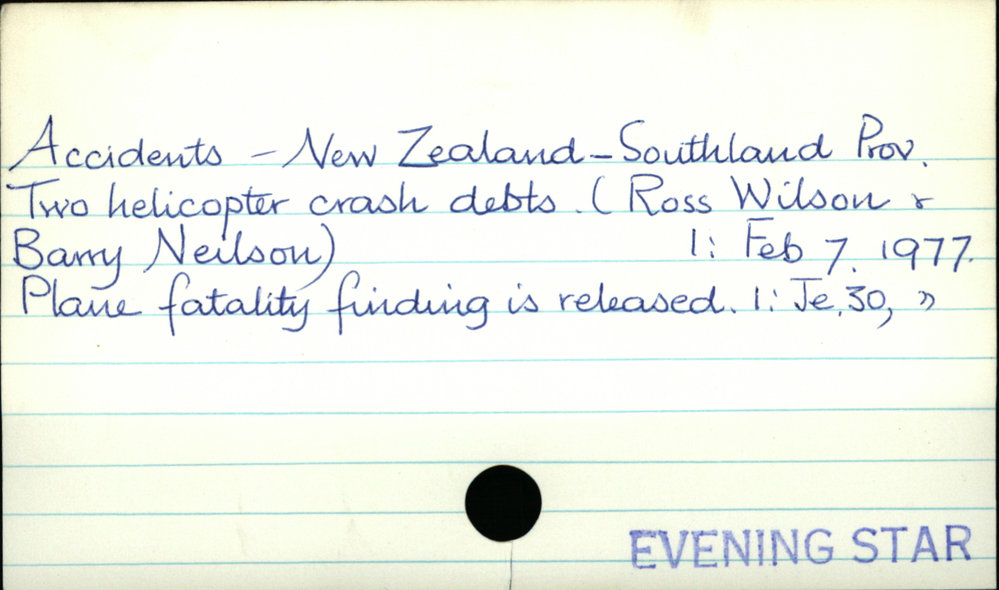 Accidents – New Zealand – Southland Prov.
Two helicopter crash debts. (Ross Wilson &
Barry Neilson) 1: Feb 7. 1977.
Plane fatality finding is released. 1: Je. 30, "
EVENING STAR